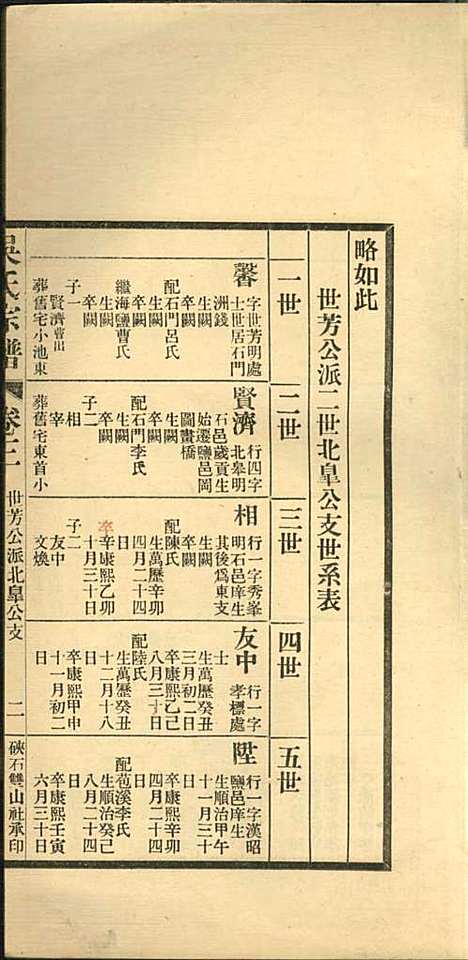 略如此
世芳公派二世北皐公支世系表
一世
馨
字世芳明處
士世居石門
洲錢
生闕
卒闕
配石門呂氏
生闕
卒闕
繼海鹽曹氏
生闕
卒闕
子一
賢濟曹出
葬舊宅小池東
二世
賢濟
行四字
北皋明
石邑歲貢生
始遷鹽邑岡
圖畫橋
生闕
卒闕
配石門李氏
生闕
卒闕
子二
相
宰
葬舊宅東首小
三世
相
行一字秀峯
明石邑庠生
其後爲東支
生闕
卒闕
配陳氏
生萬歷辛卯
四月二十四
日
卒康熙乙卯
十月三十日
子二
友中
文煥
四世
友中
行一字
孝標處
士
生萬歷癸丑
三月初二日
卒康熙乙己
八月三十日
配陸氏
生萬歷癸丑
十二月十八
日
卒康熙甲申
十一月初二
日
五世
陞
行一字漢昭
鹽邑庠生
生順治甲午
十一月三十
日
卒康熙辛卯
四月二十四
日
配苞溪李氏
生順治癸己
八月二十四
日
卒康熙壬寅
六月三十日
吳氏宗譜
卷三
世芳公派北皐公支
二
硤石雙山社承印